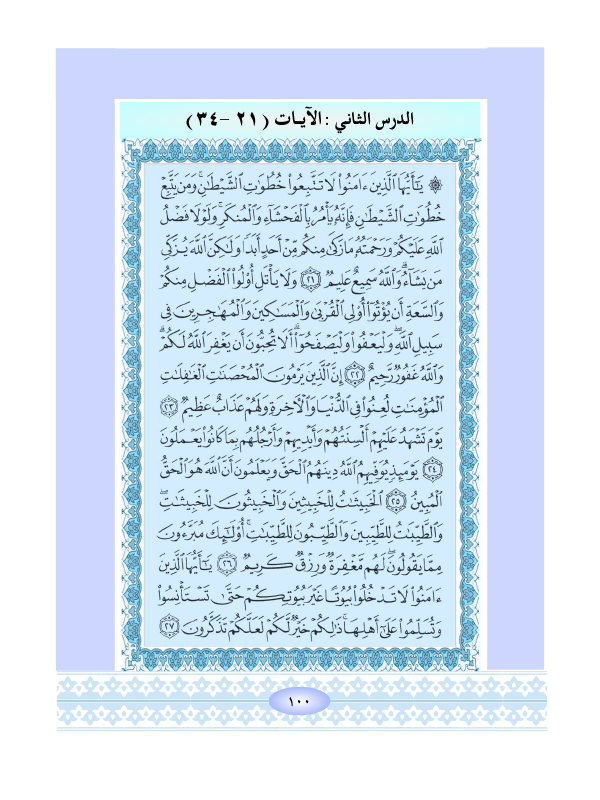 الدرس الثاني : الآيـات ( ٢١ -٣٤ )
۞ يَـٰٓأَيُّهَا ٱلَّذِينَ ءَامَنُوا۟ لَا تَتَّبِعُوا۟ خُطُوَٰتِ ٱلشَّيْطَـٰنِ ۚ وَمَن يَتَّبِعْ
خُطُوَٰتِ ٱلشَّيْطَـٰنِ فَإِنَّهُۥ يَأْمُرُ بِٱلْفَحْشَآءِ وَٱلْمُنكَرِ ۚ وَلَوْلَا فَضْلُ
ٱللَّهِ عَلَيْكُمْ وَرَحْمَتُهُۥ مَا زَكَىٰ مِنكُم مِّنْ أَحَدٍ أَبَدًا وَلَـٰكِنَّ ٱللَّهَ يُزَكِّى
مَن يَشَآءُ ۗ وَٱللَّهُ سَمِيعٌ عَلِيمٌ ﴿٢١﴾ وَلَا يَأْتَلِ أُو۟لُوا۟ ٱلْفَضْلِ مِنكُمْ
وَٱلسَّعَةِ أَن يُؤْتُوٓا۟ أُو۟لِى ٱلْقُرْبَىٰ وَٱلْمَسَـٰكِينَ وَٱلْمُهَـٰجِرِينَ فِى
سَبِيلِ ٱللَّهِ ۖ وَلْيَعْفُوا۟ وَلْيَصْفَحُوٓا۟ ۗ أَلَا تُحِبُّونَ أَن يَغْفِرَ ٱللَّهُ لَكُمْ ۗ
وَٱللَّهُ غَفُورٌ رَّحِيمٌ ﴿٢٢﴾ إِنَّ ٱلَّذِينَ يَرْمُونَ ٱلْمُحْصَنَـٰتِ ٱلْغَـٰفِلَـٰتِ
ٱلْمُؤْمِنَـٰتِ لُعِنُوا۟ فِى ٱلدُّنْيَا وَٱلْـَٔاخِرَةِ وَلَهُمْ عَذَابٌ عَظِيمٌ ﴿٢٣﴾
يَوْمَ تَشْهَدُ عَلَيْهِمْ أَلْسِنَتُهُمْ وَأَيْدِيهِمْ وَأَرْجُلُهُم بِمَا كَانُوا۟ يَعْمَلُونَ
﴿٢٤﴾ يَوْمَئِذٍ يُوَفِّيهِمُ ٱللَّهُ دِينَهُمُ ٱلْحَقَّ وَيَعْلَمُونَ أَنَّ ٱللَّهَ هُوَ ٱلْحَقُّ
ٱلْمُبِينُ ﴿٢٥﴾ ٱلْخَبِيثَـٰتُ لِلْخَبِيثِينَ وَٱلْخَبِيثُونَ لِلْخَبِيثَـٰتِ ۖ
وَٱلطَّيِّبَـٰتُ لِلطَّيِّبِينَ وَٱلطَّيِّبُونَ لِلطَّيِّبَـٰتِ ۚ أُو۟لَـٰٓئِكَ مُبَرَّءُونَ
مِمَّا يَقُولُونَ ۖ لَهُم مَّغْفِرَةٌ وَرِزْقٌ كَرِيمٌ ﴿٢٦﴾ يَـٰٓأَيُّهَا ٱلَّذِينَ
ءَامَنُوا۟ لَا تَدْخُلُوا۟ بُيُوتًا غَيْرَ بُيُوتِكُمْ حَتَّىٰ تَسْتَأْنِسُوا۟
وَتُسَلِّمُوا۟ عَلَىٰٓ أَهْلِهَا ۚ ذَٰلِكُمْ خَيْرٌ لَّكُمْ لَعَلَّكُمْ تَذَكَّرُونَ ﴿٢٧﴾
١٠٠